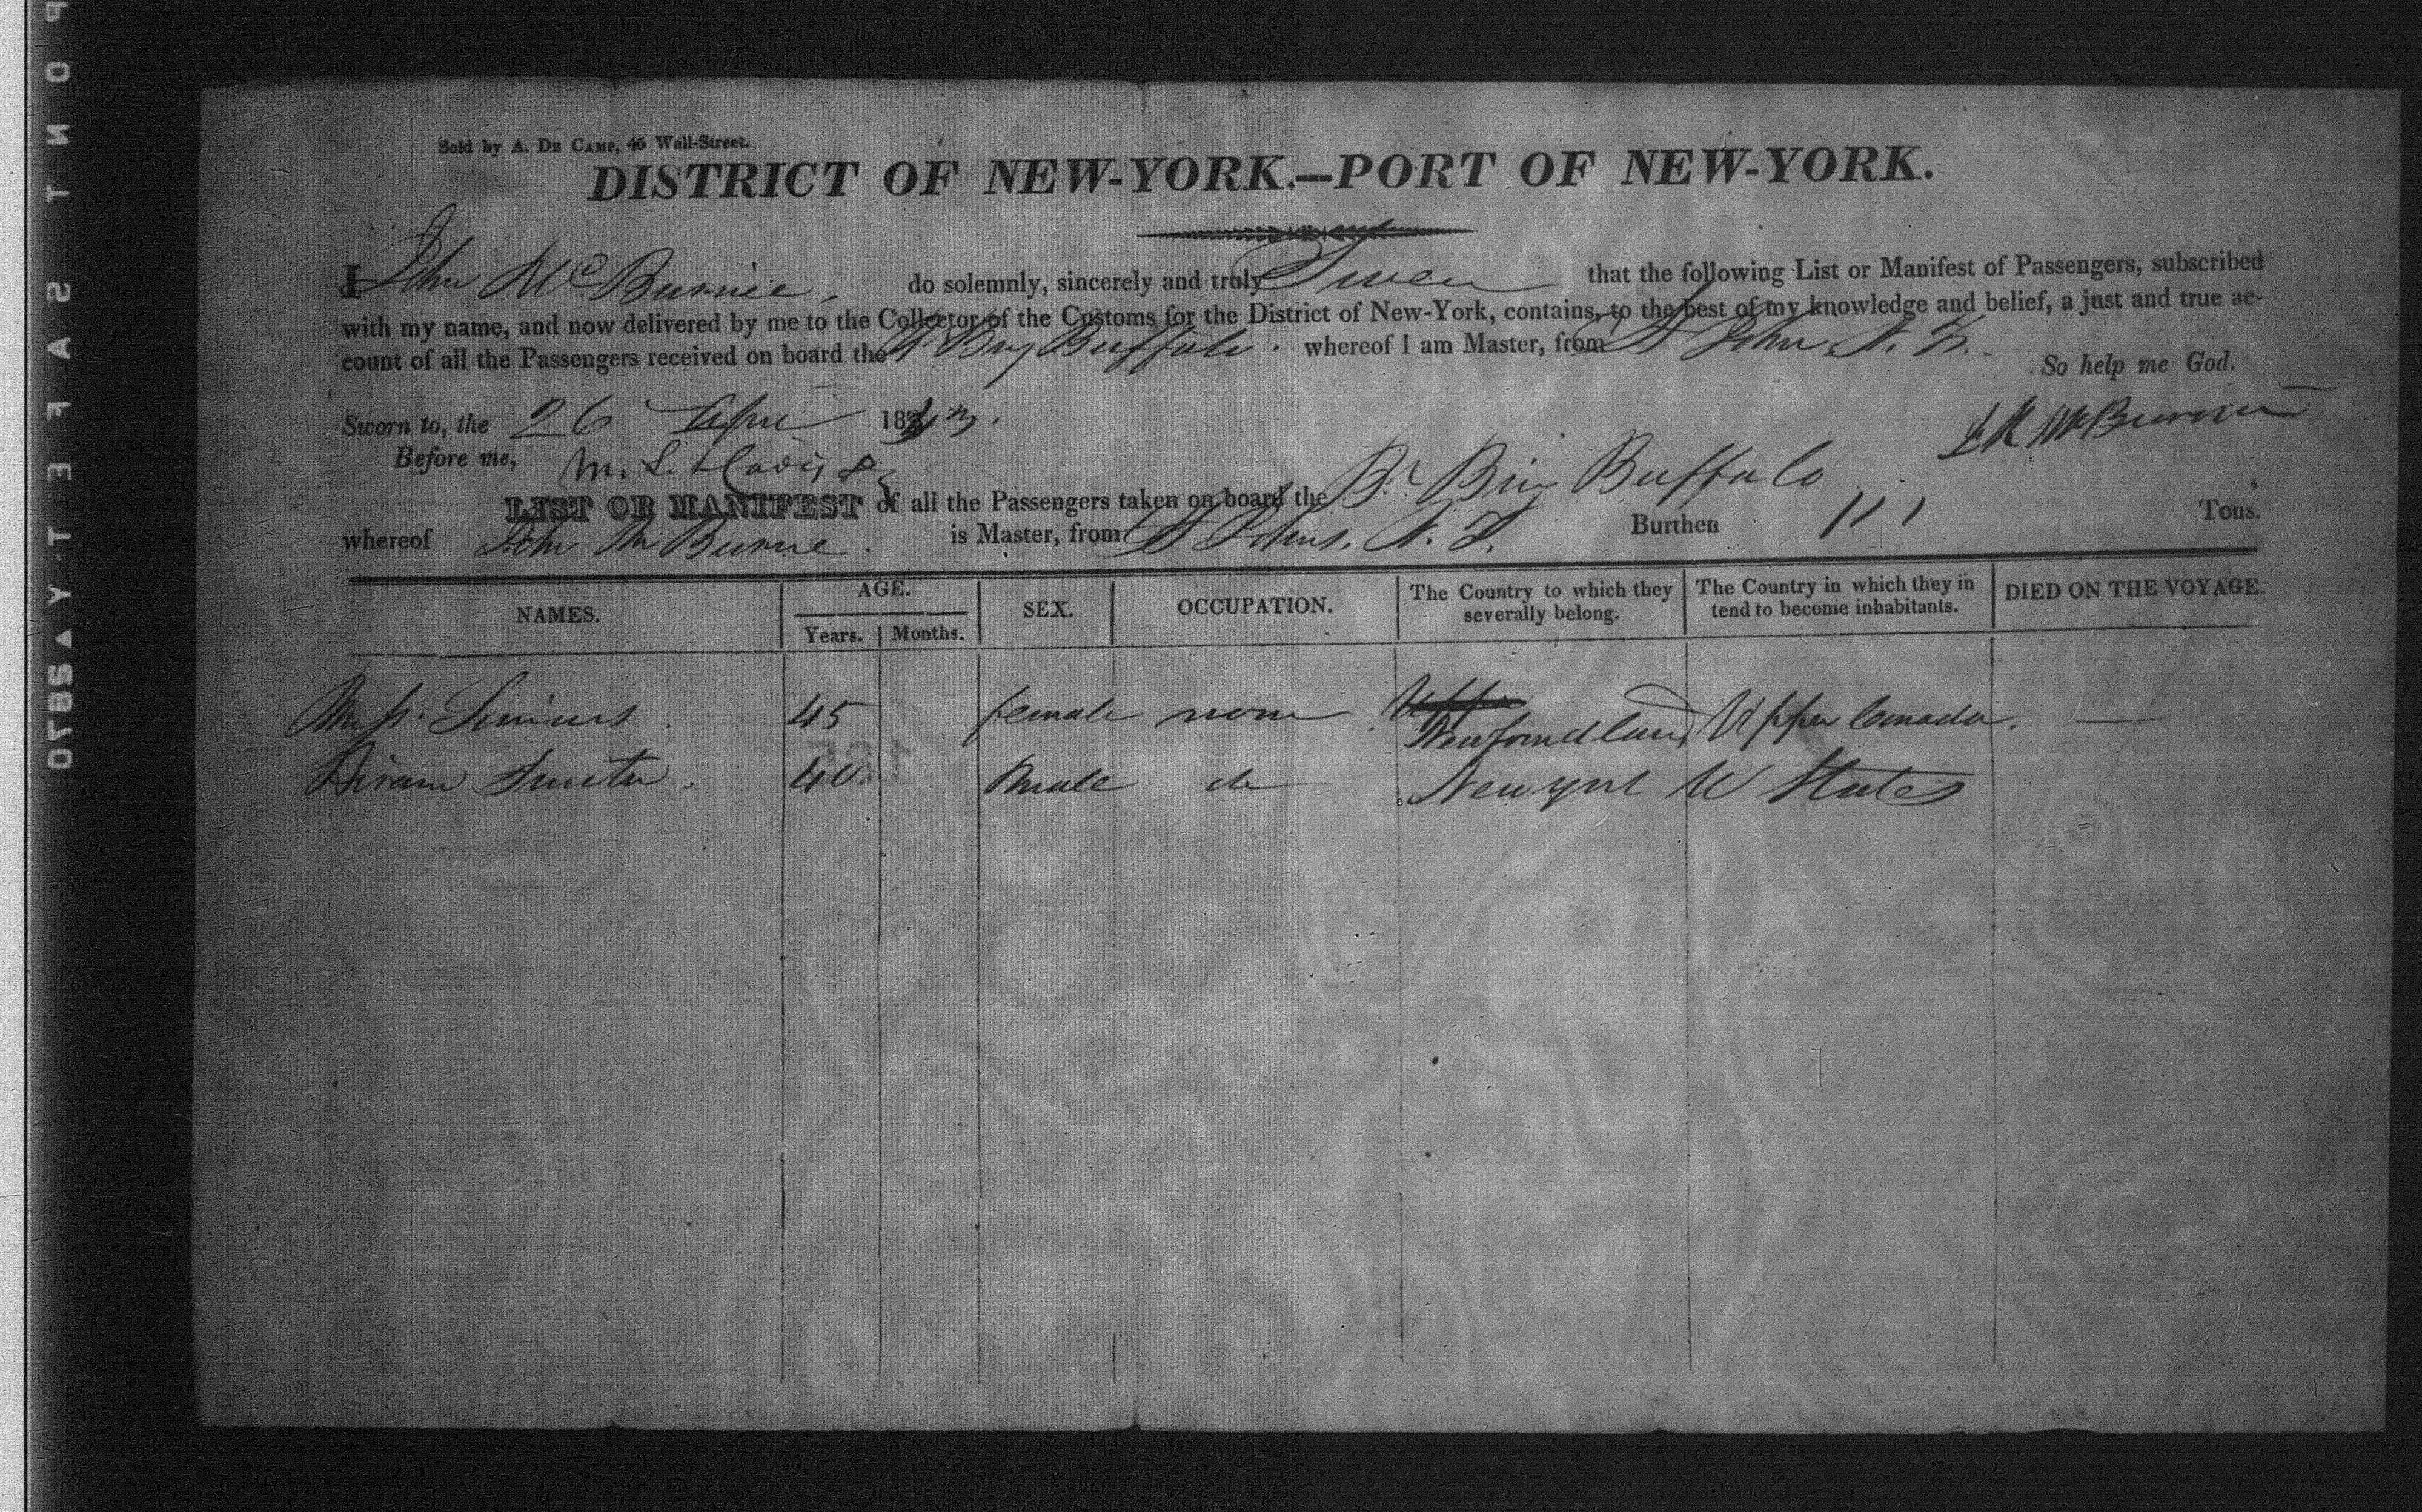 Sold by A. DE CAMP, 46 Wall-Street.
DISTRICT OF NEW-YORK.—PORT OF NEW-YORK.
I John McBurnie, do solemnly, sincerely and truly Swear that the following List or Manifest of Passengers, subscribed
with my name, and now delivered by me to the Collector of the Customs for the District of New-York, contains, to the best of my knowledge and belief, a just and true ac-
count of all the Passengers received on board the Br Brig Buffalo. whereof I am Master, from St John N. F.
So help me God.
Sworn to, the 26 Apri 1843.
McBurnie
Before me,
LIST OR MANIFEST of all the Passengers taken on board the Br Brig Buffalo
whereof John McBurnie. is Master, from St Johns. N. F. Burthen 111 Tons.
NAMES. AGE. SEX. OCCUPATION. The Country to which they severally belong. The Country in which they in tend to become inhabitants. DIED ON THE VOYAGE.
Years. Months.
45 female none Newfoundland Upper Canada. —
Hiram Smith. 40 Male do New york U States
PONTSAFETY▲2870